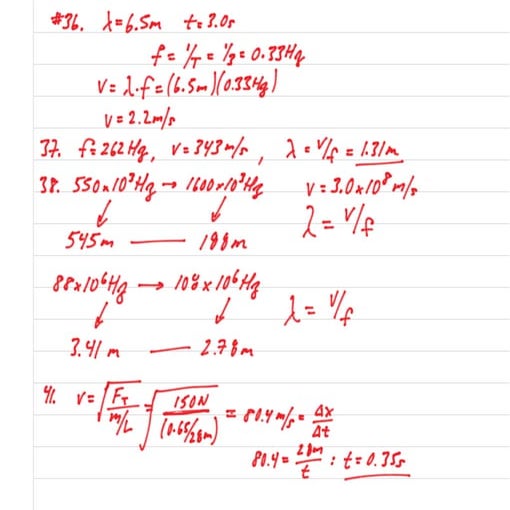 #36. λ=6.5m t=3.0s
f = 1/T = 1/3 = 0.33Hz
v = λ·f = (6.5m)(0.33Hz)
v = 2.2m/s
37. f=262Hz, v=343m/s, λ = v/f = 1.31m
38. 550x10³Hz → 1600x10³Hz v=3.0x10⁸m/s
λ = v/f
545m — 188m
88x10⁶Hz → 108x10⁶Hz
λ = v/f
3.41m — 2.78m
41. v = √(F_T / m/L) = √(150N / (0.65/28m)) = 80.4m/s = Δx/Δt
80.4 = 28m/t : t = 0.35s